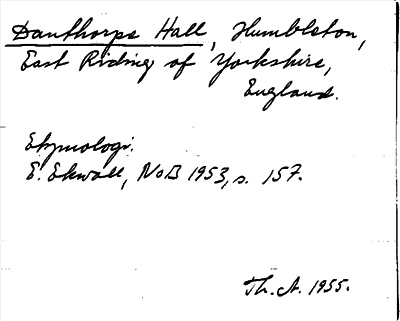 Danthorpe Hall, Humbleton,
East Riding of Yorkshire,
England.
Etymologi.
E. Ekwall, NoB 1953, s. 157.
Th. A. 1955.